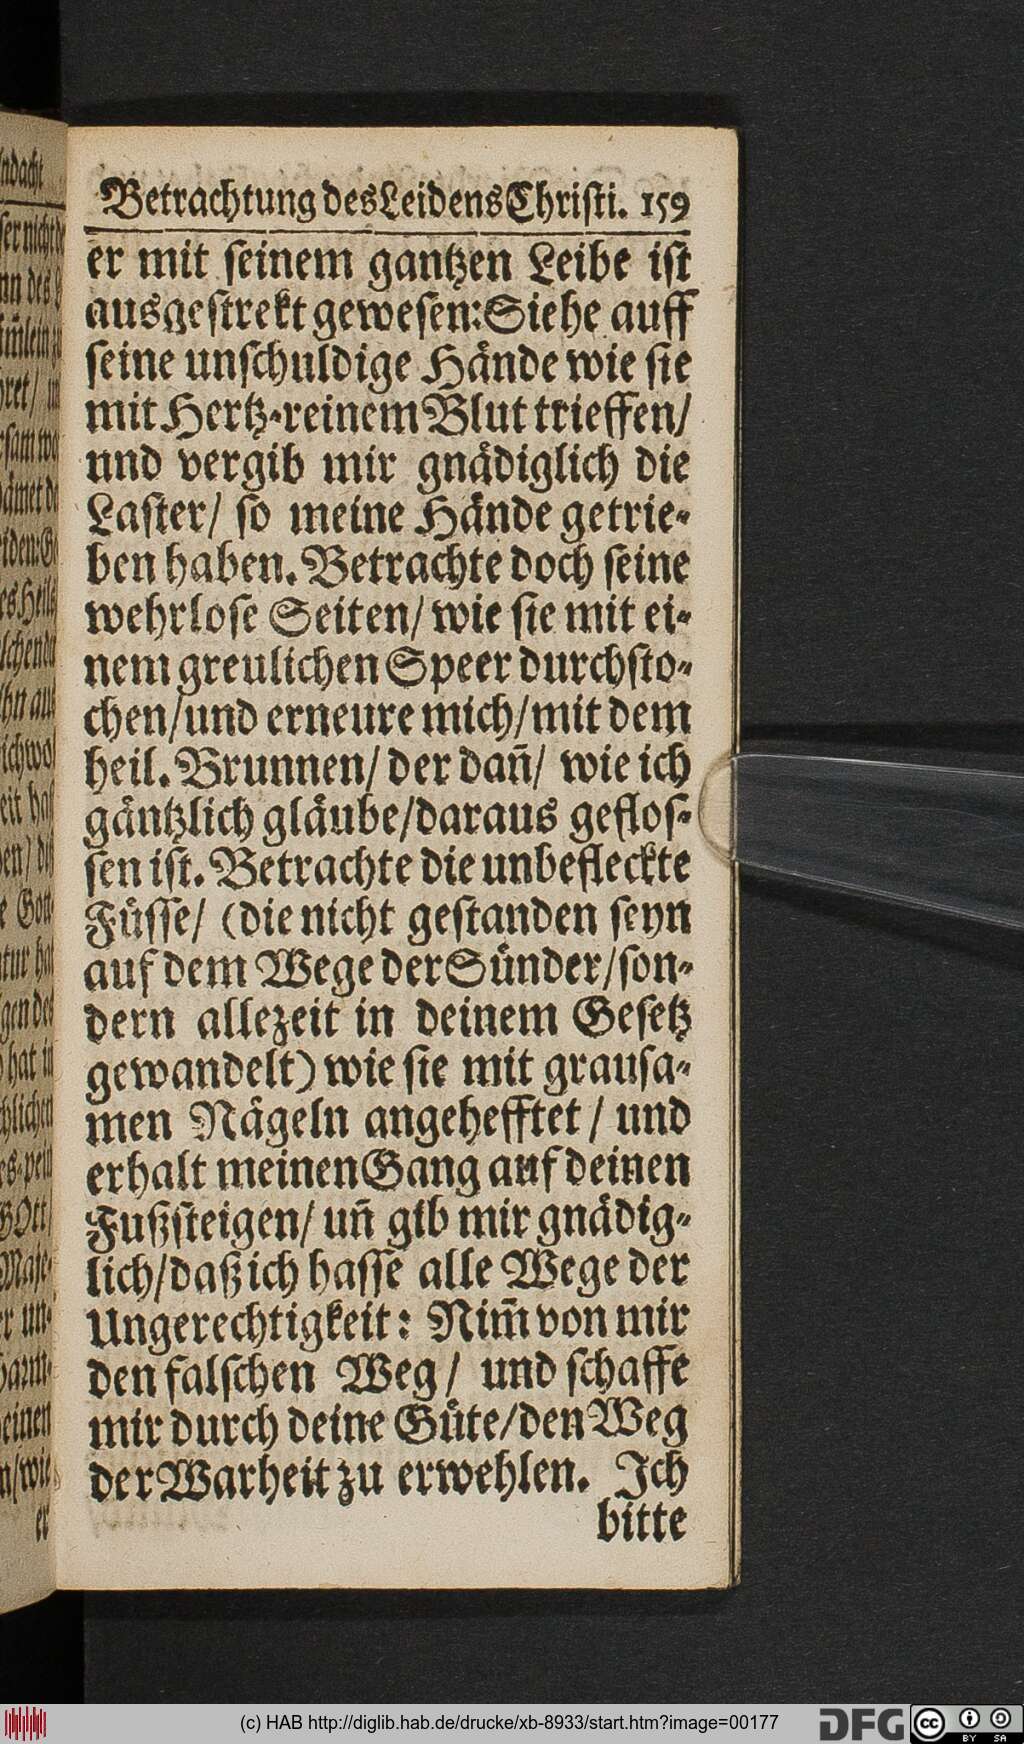 Betrachtung des Leidens Christi. 159
er mit seinem gantzen Leibe ist
ausgestrekt gewesen: Siehe auff
seine unschuldige Hände wie sie
mit Hertz-reinem Blut trieffen/
und vergib mir gnädiglich die
Laster/ so meine Hände getrie-
ben haben. Betrachte doch seine
wehrlose Seiten/ wie sie mit ei-
nem greulichen Speer durchsto-
chen/und erneure mich/mit dem
heil. Brunnen/ der dan̄/ wie ich
gäntzlich gläube/daraus geflos-
sen ist. Betrachte die unbefleckte
Füsse/ (die nicht gestanden seyn
auf dem Wege der Sünder/son-
dern allezeit in deinem Gesetz
gewandelt) wie sie mit grausa-
men Nägeln angehefftet / und
erhalt meinen Gang auf deinen
Fußsteigen/ un̄ gib mir gnädig-
lich/daß ich hasse alle Wege der
Ungerechtigkeit: Nim̄ von mir
den falschen Weg/ und schaffe
mir durch deine Güte/den Weg
der Warheit zu erwehlen. Ich
bitte
(c) HAB http://diglib.hab.de/drucke/xb-8933/start.htm?image=00177
DFG
cc
BY SA